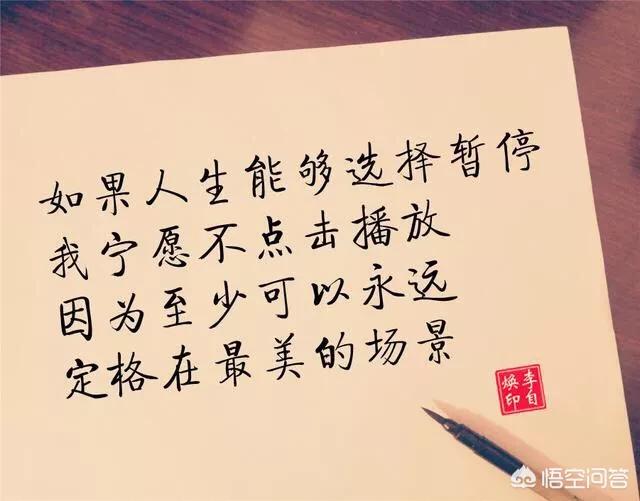 如果人生能够选择暂停
我宁愿不点击播放
因为至少可以永远
定格在最美的场景
李自
焕印
悟空问答